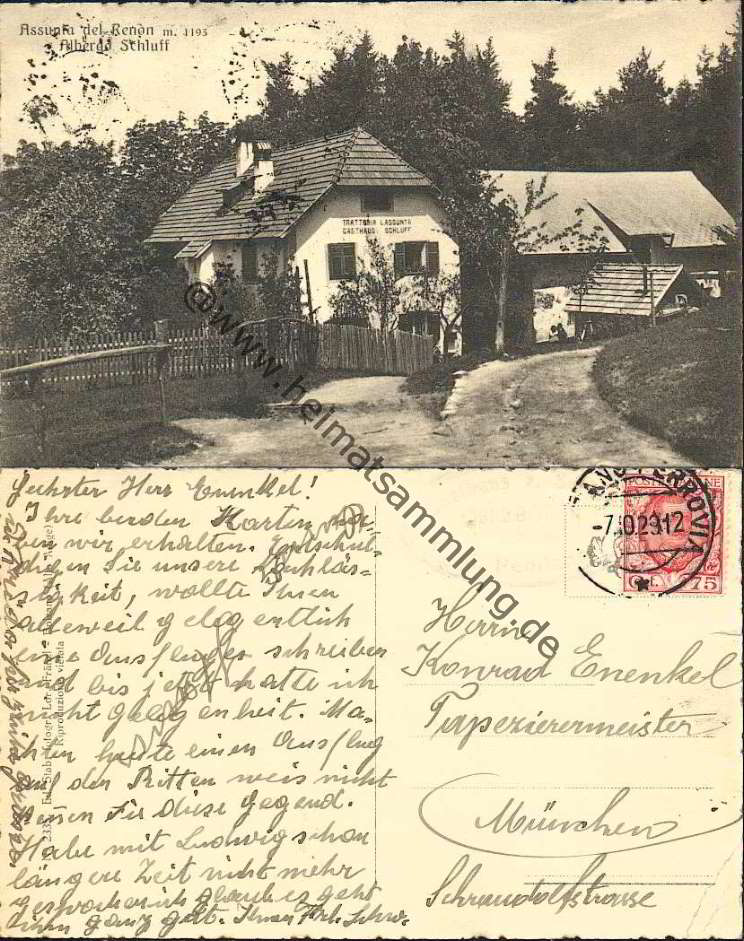 Assunta del Renòn m. 1193
Albergo Schluff
TRATTORIA L'ASSUNTA
GASTHAUS SCHLUFF
©www.heimatsammlung.de
Herr Enenkel!
Ihre beiden Karten
wir erhalten. Entschul-
digen Sie unsere Nachläs-
sigkeit, wollte Ihnen
alleweil gelegentlich
eines Ausfluges schreiben
und bis jetzt hatte ich
nicht gelegenheit. Ma-
chen heute einen Ausflug
auf den Ritten weis nicht
kenen Sie diese gegend.
Habe mit Ludwig schon
längere Zeit nicht mehr
gesprochen ich glaube es geht
ihm ganz gut.
Riproduzione vietata
FERROVIA
-7.10.29.12
POSTE ITALIANE
75
Herrn
Konrad Enenkel
Tapezierermeister
München
Schraudolfstrasse